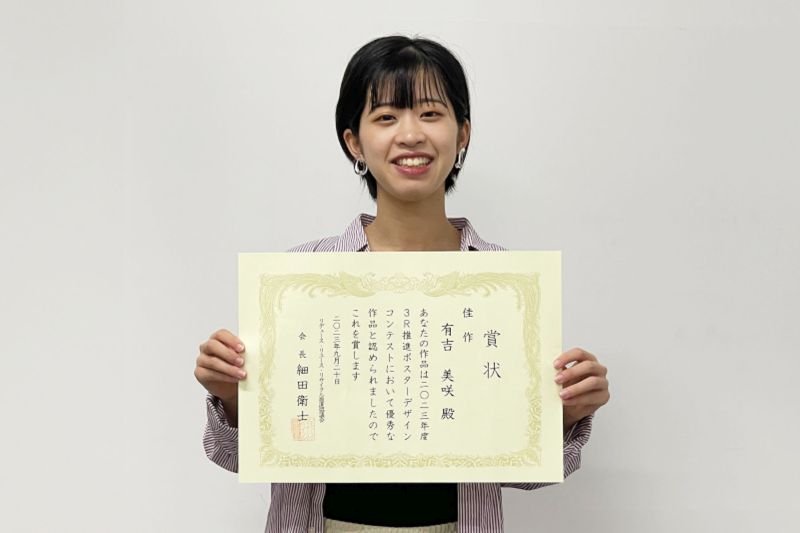 賞状
佳作
有吉 美咲 殿
あなたの作品は二〇二三年度
3R推進ポスターデザイン
コンテストにおいて優秀な
作品と認められましたので
これを賞します
二〇二三年九月二十日
リデュース・リユース・リサイクル推進協議会
会長 細田衛士